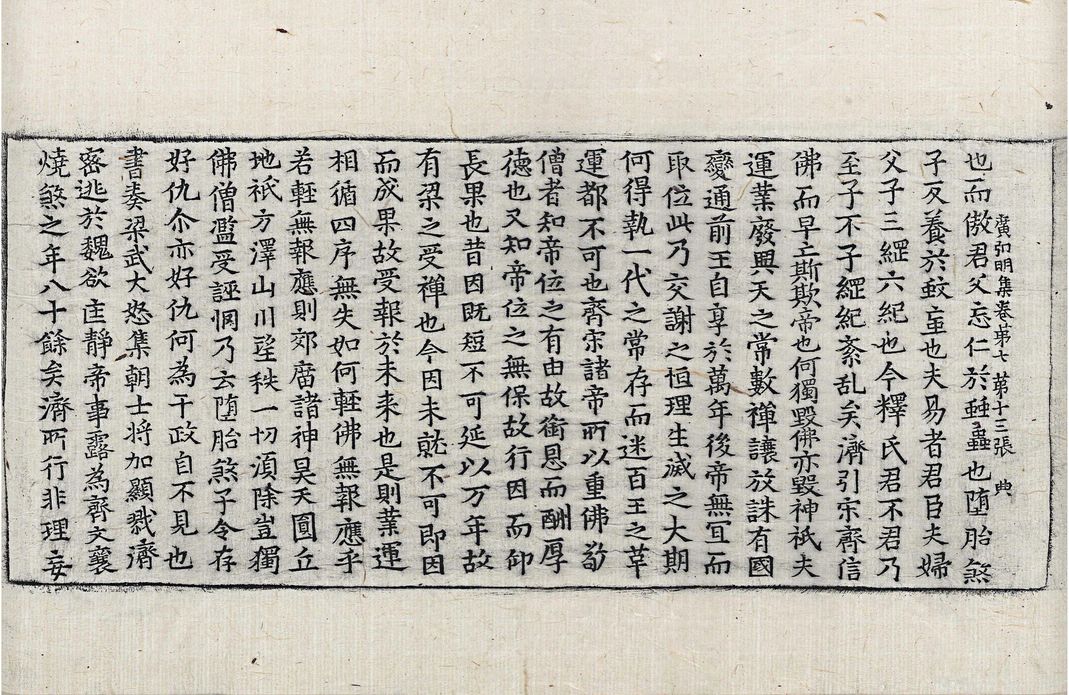 也而傲君父忘仁於蛭蟲也堕胎煞
廣弘明集卷第七 第十三張 典
子反養於蚊䖟也夫易者君臣夫婦
父子三綱六紀也今釋氏君不君乃
至子不子綱紀紊乱矣濟引宋齊信
佛而早亡斯欺帝也何獨毀佛亦毀神祇夫
運業廢興天之常數禪讓放誅有國
變通前王自享於萬年後帝無冝而
取位此乃交謝之恒理生滅之大期
何得執一代之常存而迷百王之革
運都不可也齊宋諸帝所以重佛敬
僧者知帝位之有由故銜恩而酬厚
德也又知帝位之無保故行因而仰
長果也昔因既短不可延以万年故
有梁之受禪也今因未就不可即因
而成果故受報於未来也是則業運
相循四序無失如何輕佛無報應乎
若輕無報應則郊廟諸神昊天圓丘
地祇方澤山川望秩一切湏除豈獨
佛僧濫受誣惘乃云堕胎煞子今存
好仇尒亦好仇何為干政自不見也
書奏梁武大怒集朝士将加顯戮濟
密逃於魏欲匡静帝事露為齊文襄
燒煞之年八十餘矣濟所行非理妄